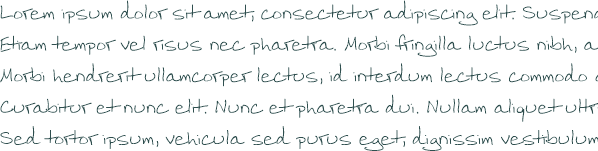 Lorem ipsum dolor sit amet, consectetur adipiscing elit. Suspend
Etiam tempor vel risus nec pharetra. Morbi fringilla luctus nibh, a
Morbi hendrerit ullamcorper lectus, id interdum lectus commodo
Curabitur et nunc elit. Nunc et pharetra dui. Nullam aliquet ultr
Sed tortor ipsum, vehicula sed purus eget, dignissim vestibulum